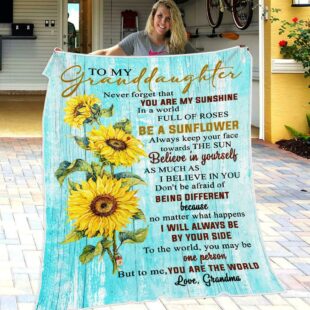 TO MY
Granddaughter
Never forget that
YOU ARE MY SUNSHINE
In a world
FULL OF ROSES
BE A SUNFLOWER
Always keep your face
towards THE SUN
Believe in yourself
AS MUCH AS
I BELIEVE IN YOU
Don't be afraid of
BEING DIFFERENT
because
no matter what happens
I WILL ALWAYS BE
BY YOUR SIDE
To the world, you may be
one person
But to me, YOU ARE THE WORLD
Love, Grandma